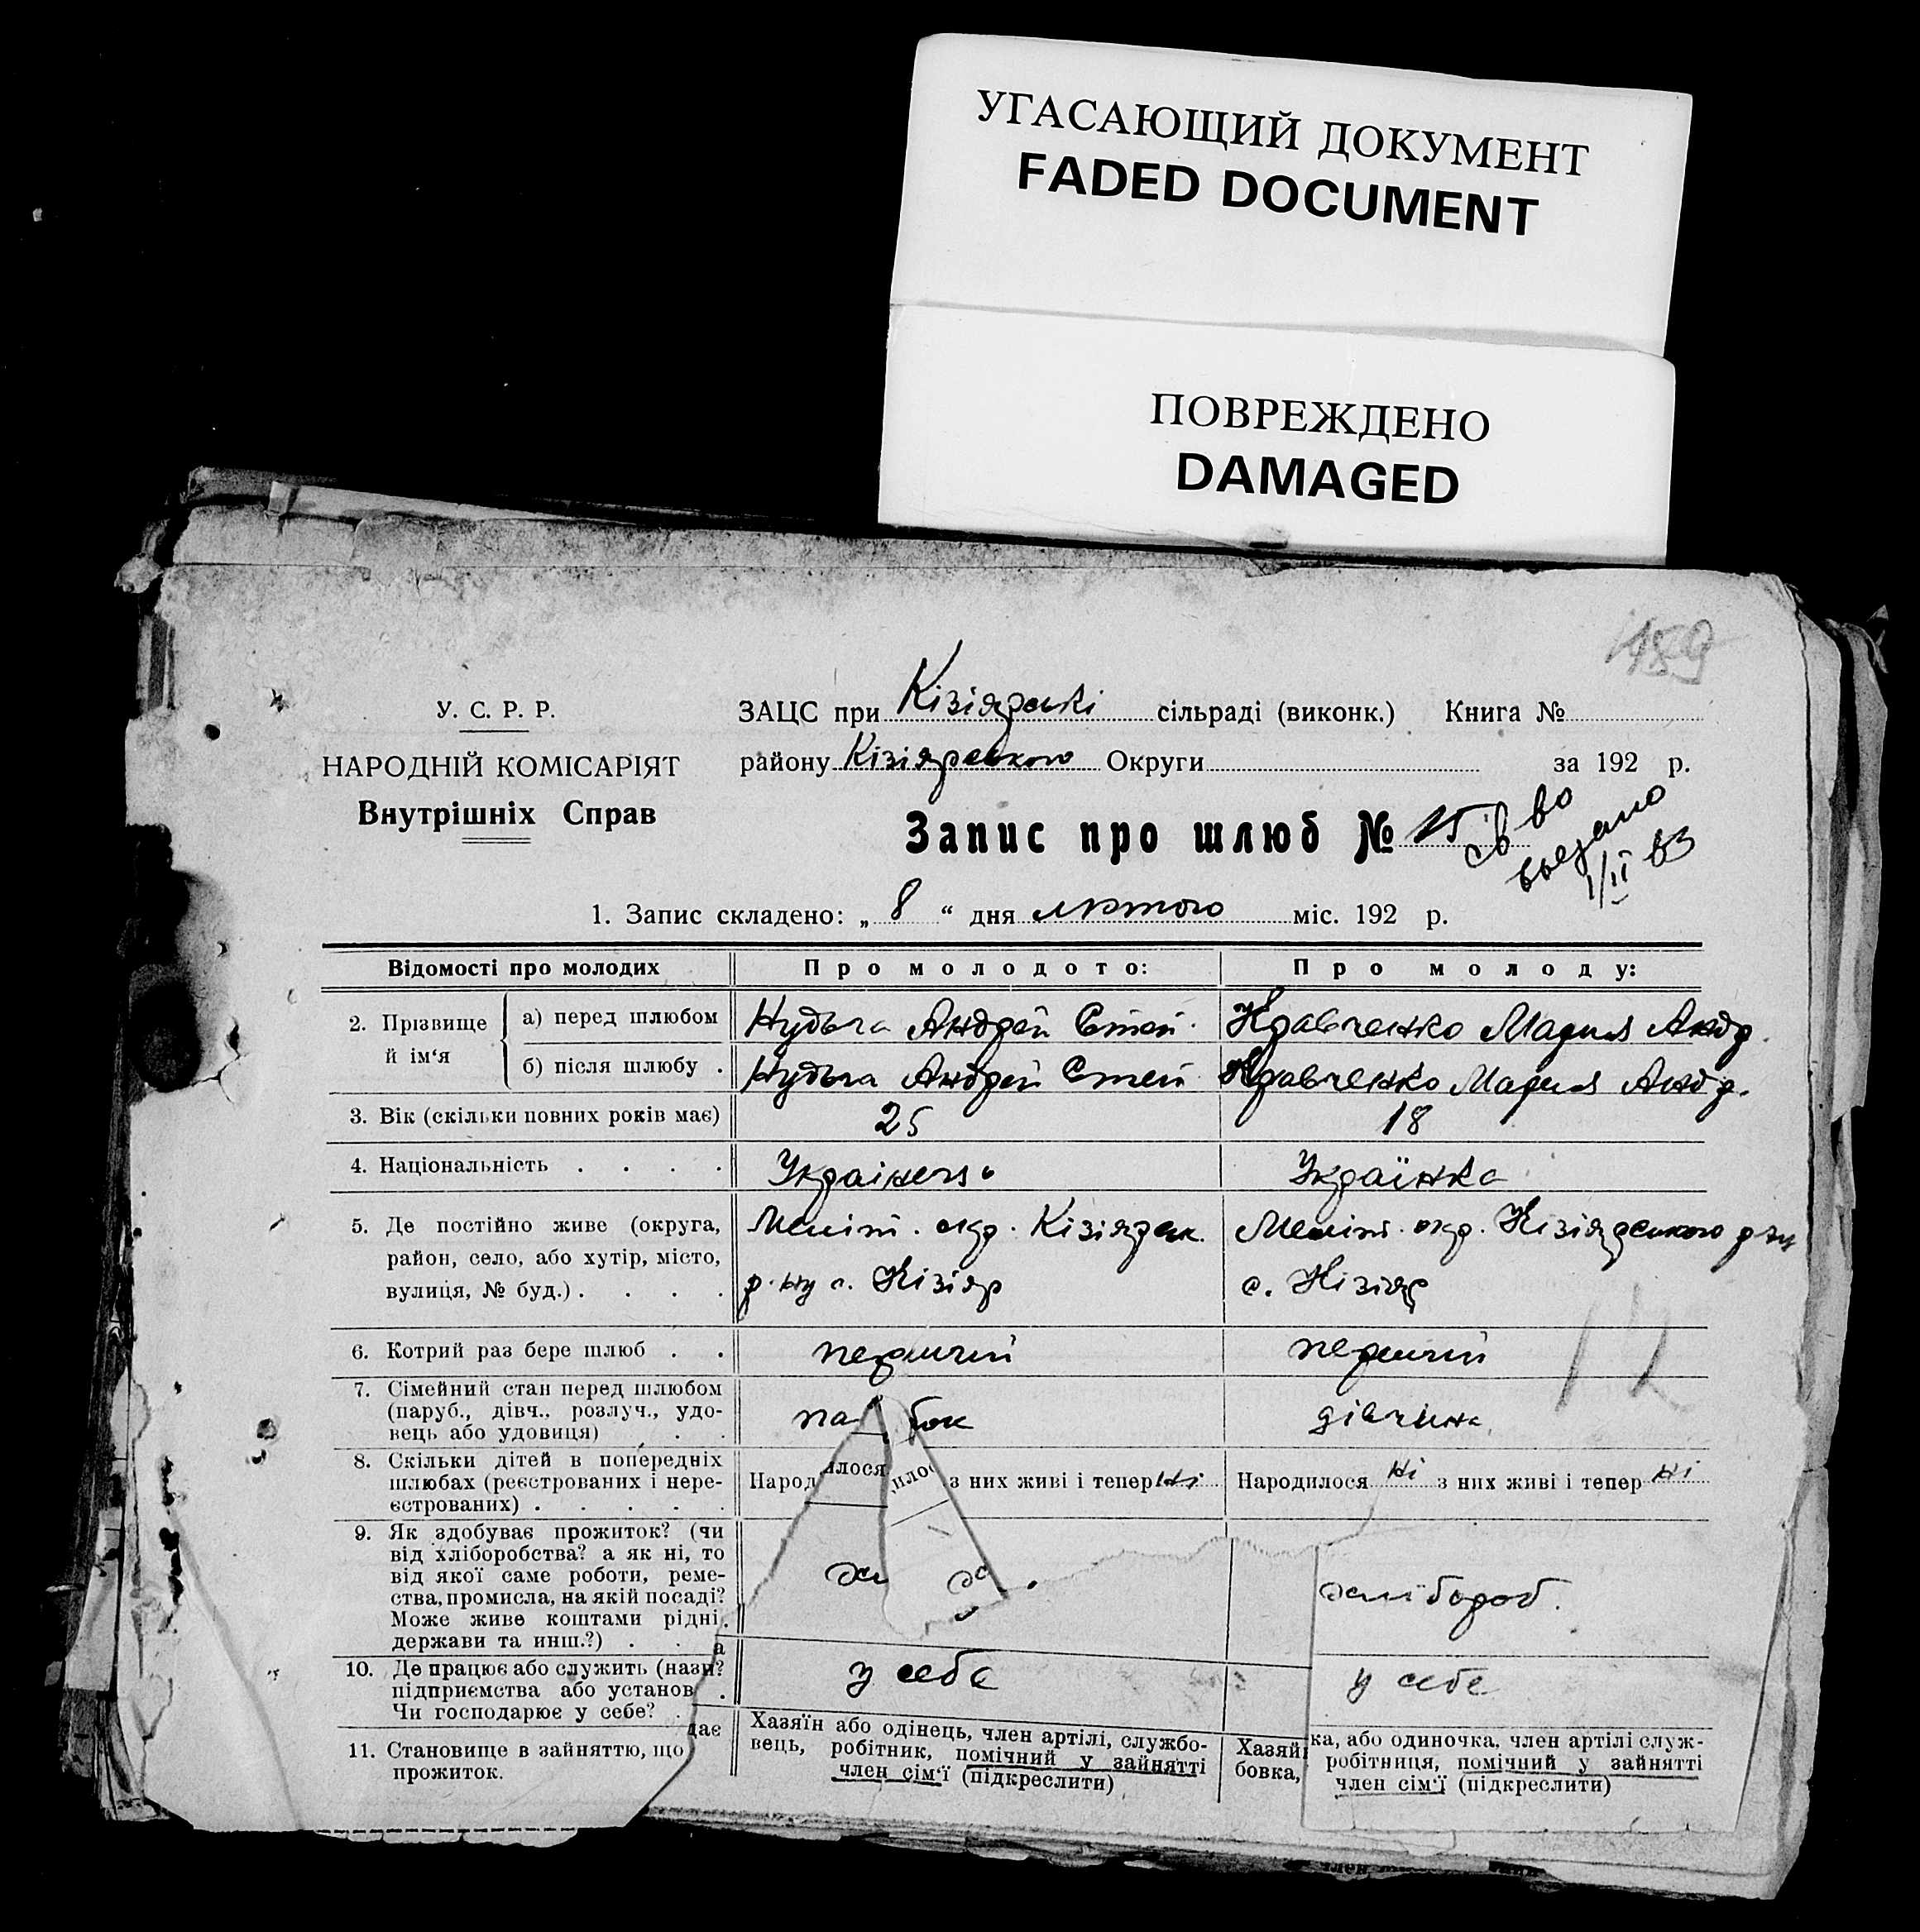 УГАСАЮЩИЙ ДОКУМЕНТ
FADED DOCUMENT
ПОВРЕЖДЕНО
DAMAGED
159
У. С. Р. Р.
НАРОДНІЙ КОМІСАРІЯТ
Внутрішніх Справ
ЗАЦС при Кізіярські сільраді (виконк.) Книга №
району Кізіярського Округи за 192 р.
Запис про шлюб № 15
св во
выдано
1/II 63
1. Запис складено: „ 8 “ дня лютого міс. 192 р.
Відомості про молодих Про молодого: Про молоду:
2. Прізвище й ім‘я
а) перед шлюбом Нудьга Андрей Степ. Кравченко Мария Андр.
б) після шлюбу . Нудьга Андрей Степ Кравченко Мария Андр.
3. Вік (скільки повних років має) 25 18
4. Національність . . . . Українець Українка
5. Де постійно живе (округа, район, село, або хутір, місто, вулиця, № буд.) . . . .
Меліт. окр. Кізіярськ. Меліт. окр. Кізіярського р-ну
р-ну с. Кізіяр с. Кізіяр
6. Котрий раз бере шлюб . . перший перший
7. Сімейний стан перед шлюбом
(паруб., дівч., розлуч., удо-
вець або удовиця) . . . па бок дівчина
8. Скільки дітей в попередніх
шлюбах (реєстрованих і нере-
єстрованих) . . . . .
Народ илося илос з них живі і тепер ні Народилося ні з них живі і тепер ні
9. Як здобуває прожиток? (чи
від хліборобства? а як ні, то
від якої саме роботи, реме-
ства, промисла, на якій посаді?
Може живе коштами рідні,
держави та инш.?) . . хлібороб.
10. Де працює або служить (назва
підприємства або установ ?
Чи господарює у себе? . . у себе у себе
11. Становище в зайняттю, що дає
прожиток.
Хазяїн або одінець, член артілі, службо-
вець, робітник, помічний у зайнятті
член сім‘ї (підкреслити)
Хазяйка, або одиночка, член артілі служ-
бовка, робітниця, помічний у зайнятті
член сім‘ї (підкреслити)
12